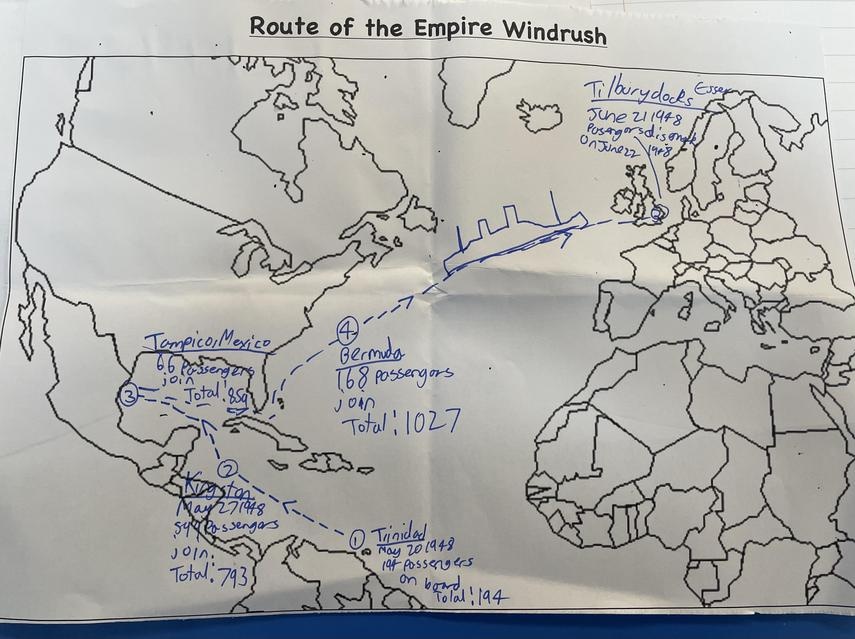 Route of the Empire Windrush
Tilbury docks Essex
June 21 1948
on June 22 1948
5
4
Bermuda
168 passengers
join
Total: 1027
Tampico, Mexico
66 passengers
join
Total: 859
3
2
Kingston
May 27 1948
passengers
join:
Total: 793
1
Trinidad
May 20 1948
194 passengers
on board
Total: 194